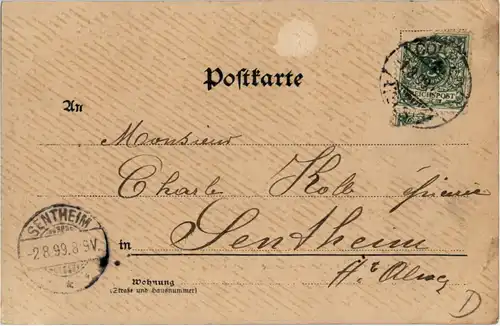 Postkarte
REICHSPOST
An
Monsieur
Charle Kolb
SENTHEIM
-2.8.99.8-9V.
in Sentheim
Hte Alsace
Wohnung
(Straße und Hausnummer)
D